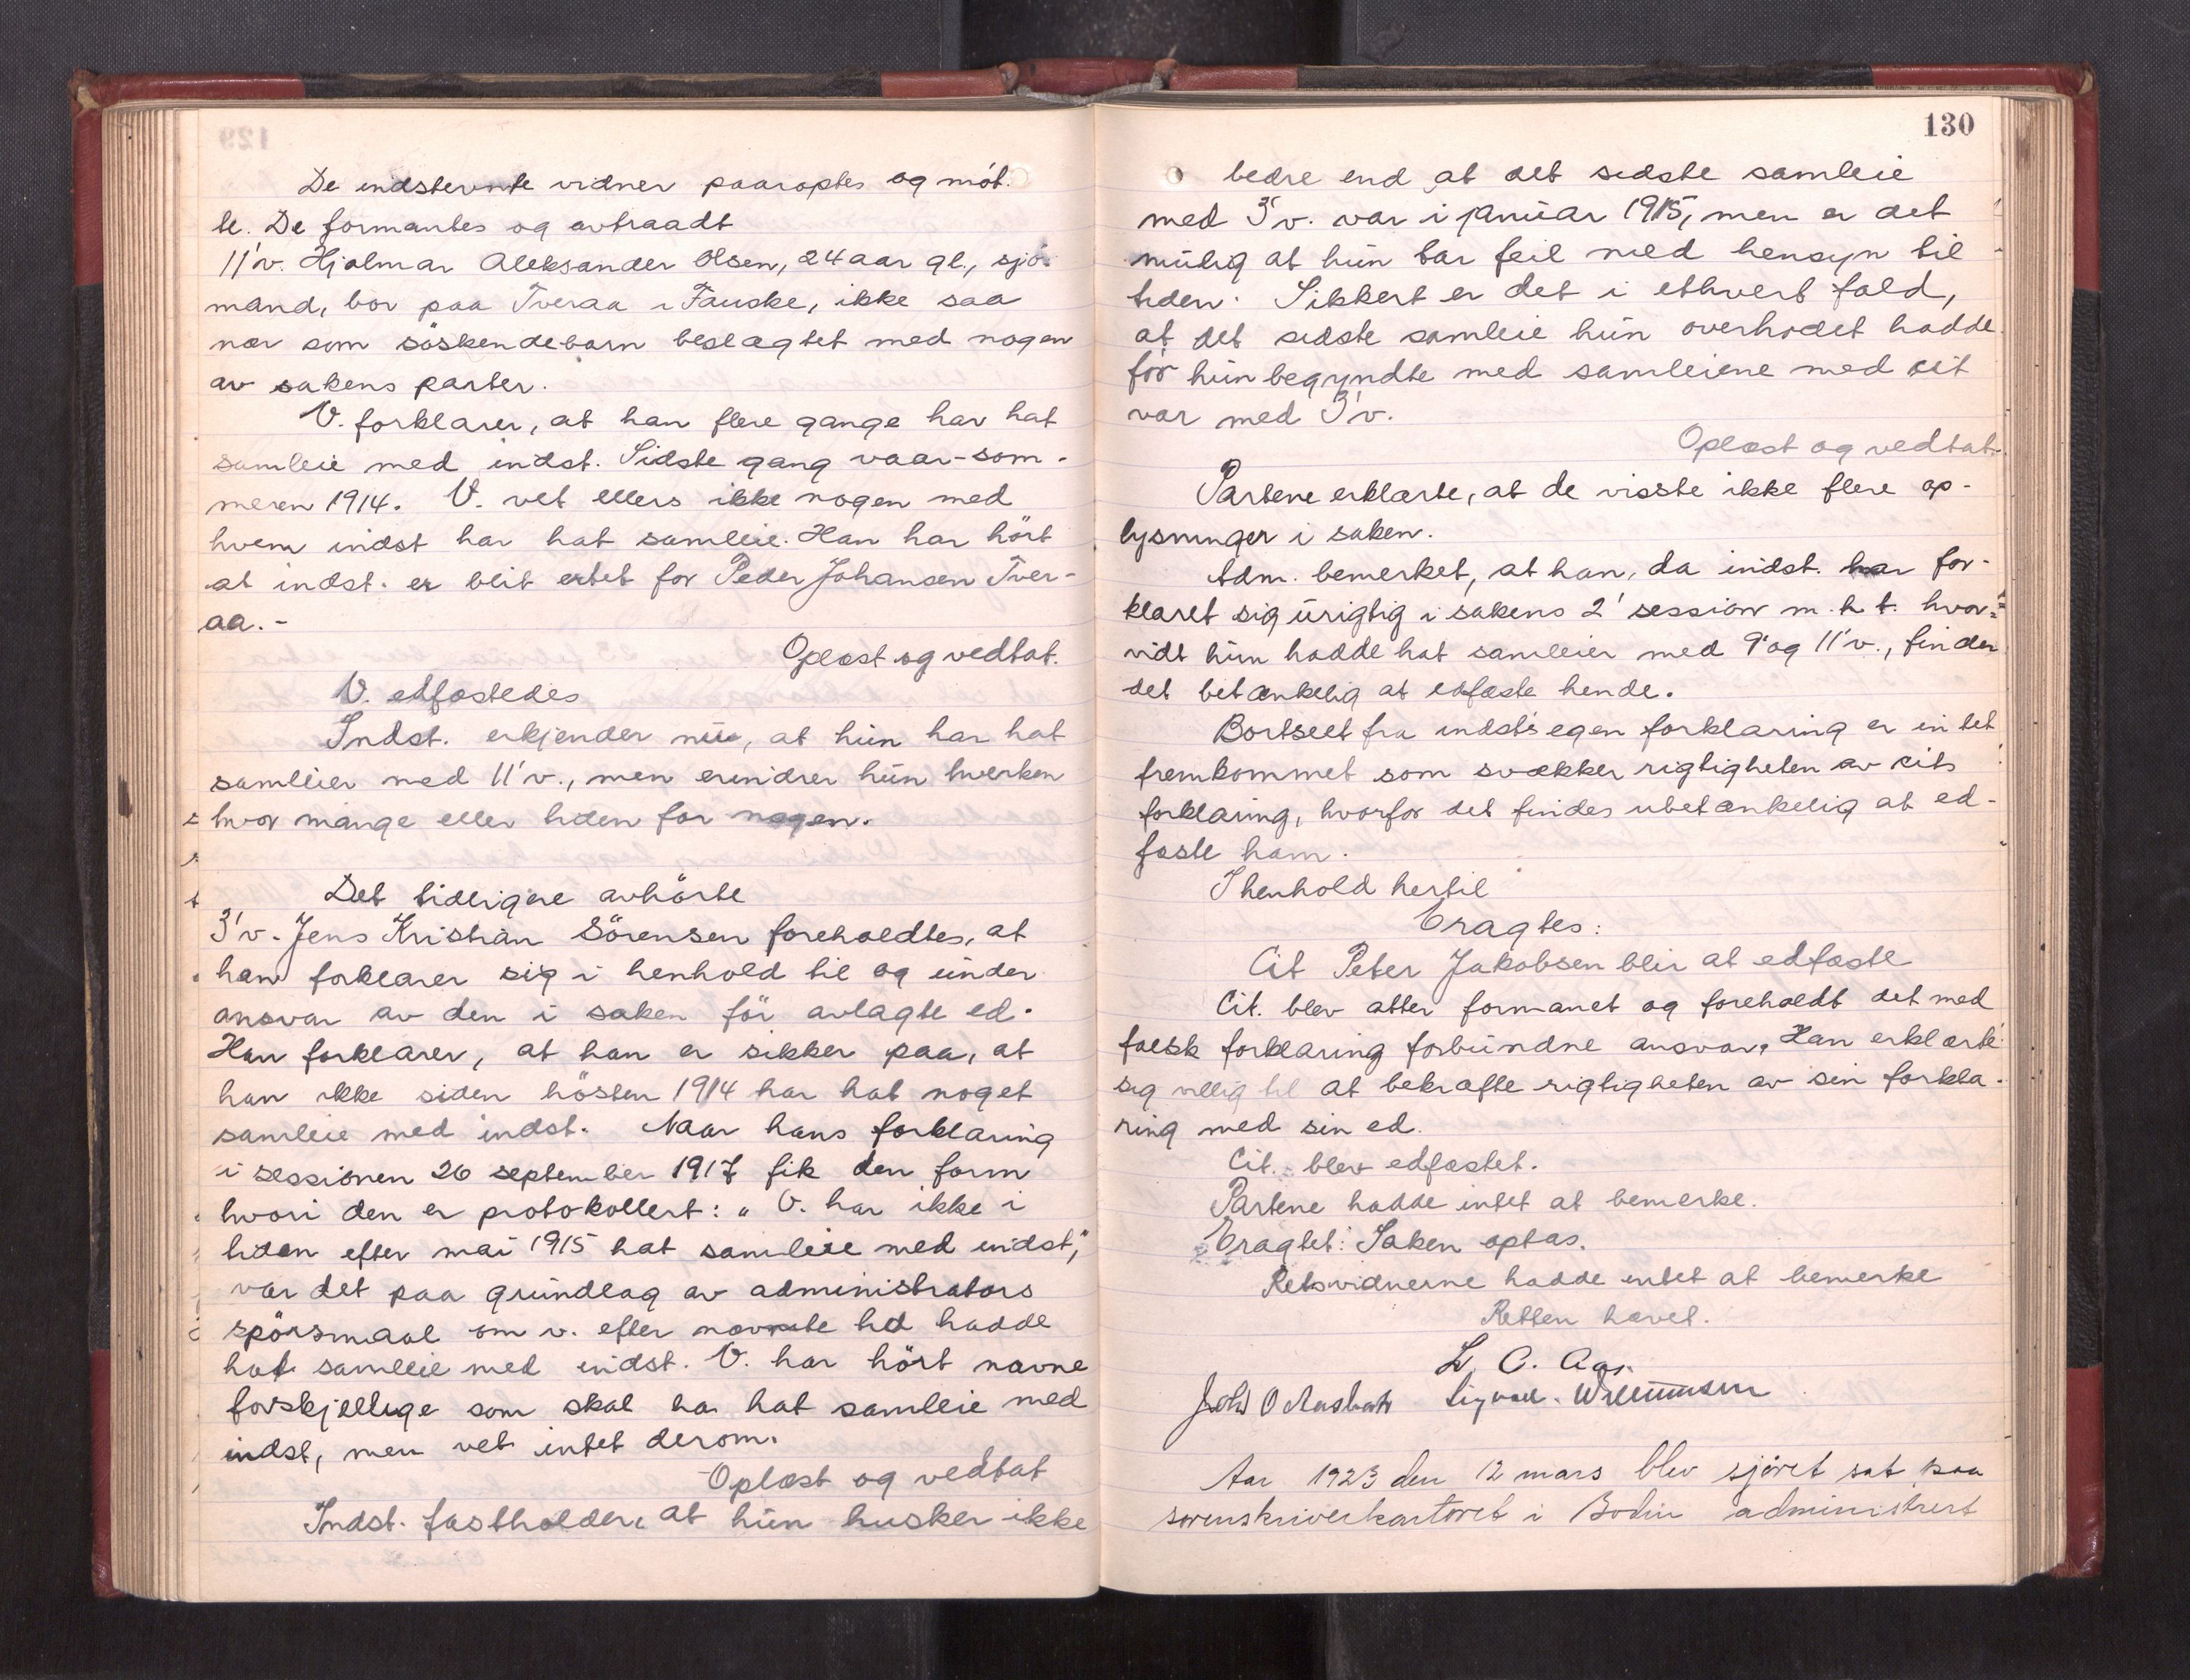 De indstevnte vidner paaroptes og møt-
te. De formantes og avtraadt
11'v. Hjalmar Aleksander Olsen, 24 aar gl., sjö-
mand, bor paa Tveraa i Fauske, ikke saa
nær som söskendebarn beslægtet med nogen
av sakens parter.
V. forklarer, at han flere gange har hat
samleie med indst. Sidste gang vaar-som-
meren 1914. V. vet ellers ikke nogen med
hvem indst har hat samleie. Han har hört
at indst. er blit ertet for Peder Johansen Tver-
aa.-
Oplæst og vedtat.
V. edfæstedes
Indst. erkjender nu, at hun har hat
samleier med 11'v., men erindrer hun hverken
hvor mange eller tiden for nogen.
Det tidligere avhörte
3'v. Jens Kristian Sörensen foreholdtes, at
han forklarer sig i henhold til og under
ansvar av den i saken för avlagte ed.
Han forklarer, at han er sikker paa, at
han ikke siden hösten 1914 har hat noget
samleie med indst. Naar hans forklaring
i sessionen 26 september 1917 fik den form
hvori den er protokollert: "V. har ikke i
tiden efter mai 1915 hat samleie med indst,"
var det paa grundlag av administrators
spörsmaal om v. efter nævnte tid hadde
hat samleie med indst. V. har hört nævne
forskjellige som skal ha hat samleie med
indst, men vet intet derom.
Oplæst og vedtat
Indst. fastholder, at hun husker ikke
130
bedre end at det sidste samleie
med 3'v. var i januar 1915, men er det
mulig at hun tar feil med hensyn til
tiden. Sikkert er det i ethvert fald,
at det sidste samleie hun overhodet hadde
för hun begyndte med samleiene med cit
var med 3'v.
Oplæst og vedtat.
Partene erklærte, at de visste ikke flere op-
lysninger i saken.
Adm. bemerket, at han, da indst. har for-
klaret sig urigtig i sakens 2' session m. h. t. hvor-
vidt hun hadde hat samleier med 9' og 11'v., finder
det betænkelig at edfæste hende.
Bortseet fra indst's egen forklaring er intet
fremkommet som svækker rigtigheten av cits
forklaring, hvorfor det findes ubetænkelig at ed-
fæste ham.
I henhold hertil
Eragtes:
Cit Peter Jakobsen blir at edfæste
Cit. blev atter formanet og foreholdt det med
falsk forklaring forbundne ansvar. Han erklærte
sig villig til at bekræfte rigtigheten av sin forkla-
ring med sin ed.
Cit. blev edfæstet.
Partene hadde intet at bemerke.
Eragtet: Saken optas.
Retsvidnerne hadde intet at bemerke
Retten hævet.
L. C. Aas.
Joh O Sigvald. Willumsen
Aar 1923 den 12 mars blev sjöret sat paa
sorenskriverkontoret i Bodin administrert